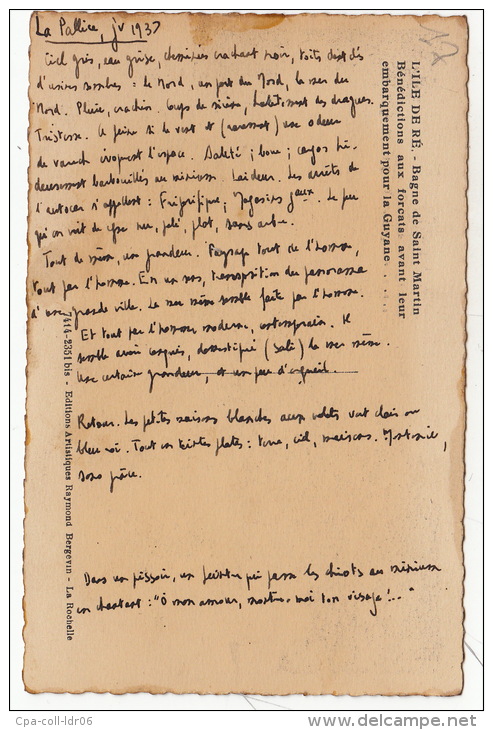 La Pallice, jv 1937
Ciel gris, eau grise, cheminées crachant noir, toits dentelés
d'usines sombres : le Nord, un port du Nord, la mer du
Nord. Pluie, crachin. Coups de sirène, halètement des dragues.
Tristesse. A peine si le vent et (rarement) une odeur
de varech évoquent l'espace. Saleté ; boue ; cargos hi-
deusement barbouillés au minium. Laideur. Les arrêts de
l'autocar s'appellent : Frigorifique, Magasins gaux. Le peu
qu'on voit de Ré, pelé, plat, sans arbre.
Tout de même, une grandeur. Paysage tout de l'homme,
tout par l'homme. En un sens, transposition du panorama
d'une grande ville. La mer même semble faite par l'homme.
Et tout par l'homme moderne, contemporain. Il
semble avoir conquis, domestiqué (sali) la mer même.
Une certaine grandeur, et un peu d'orgueil.
Retour. Les petites maisons blanches aux volets vert clair ou
bleu roi. Tout en teintes plates : terre, ciel, maisons.
sans grâce.
Dans un pissoir, un peintre qui passe les chiots au minium
en chantant : "O mon amour, montre-moi ton visage !.."
L'ILE DE RÉ. - Bagne de Saint Martin
Bénédictions aux forçats avant leur
embarquement pour la Guyane
7414-2351 bis - Editions Artistiques Raymond Bergevin - La Rochelle
12
Cpa-coll-ldr06
www.delcampe.net